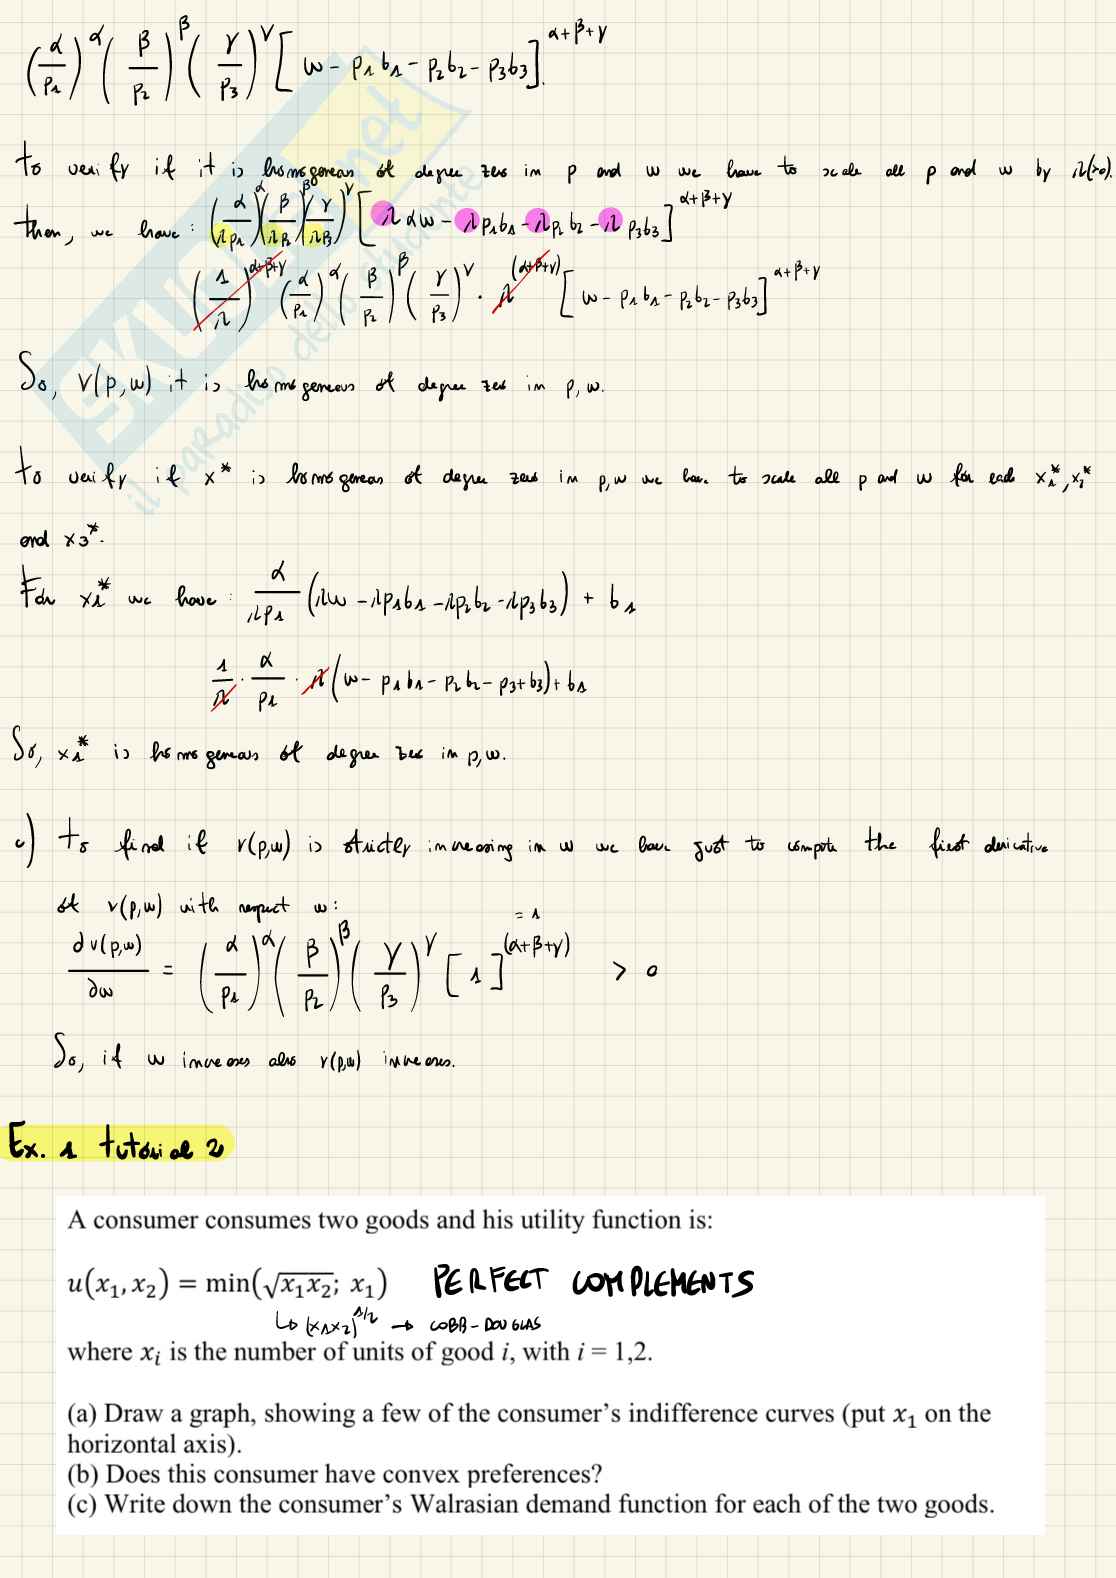 (α/p₁)^α (β/p₂)^β (γ/p₃)^γ [w - p₁b₁ - p₂b₂ - p₃b₃]^α+β+γ
To verify if it is homogeneous of degree zero in p and w we have to scale all p and w by λ(>0).
then, we have: (α/λp₁)^α (β/λp₂)^β (γ/λp₃)^γ [λαw - λp₁b₁ - λp₂b₂ - λp₃b₃]^α+β+γ
(1/λ)^α+β+γ (α/p₁)^α (β/p₂)^β (γ/p₃)^γ · λ^(α+β+γ) [w - p₁b₁ - p₂b₂ - p₃b₃]^α+β+γ
So, v(p,w) it is homogeneous of degree zero in p, w.
To verify if x* is homogeneous of degree zero in p,w we have to scale all p and w for each x₁*, x₂*
and x₃*.
For x₁* we have: α/λp₁ (λw - λp₁b₁ - λp₂b₂ - λp₃b₃) + b₁
1/λ · α/p₁ · λ(w - p₁b₁ - p₂b₂ - p₃+b₃) + b₁
So, x₁* is homogeneous of degree zero in p,w.
c) To find if v(p,w) is strictly increasing in w we have just to compute the first derivative
of v(p,w) with respect w:
= 1
dv(p,w)/∂w = (α/p₁)^α (β/p₂)^β (γ/p₃)^γ [1]^(α+β+γ) > 0
So, if w increases also v(p,w) increases.
Ex. 1 tutorial 2
A consumer consumes two goods and his utility function is:
u(x₁, x₂) = min(√x₁x₂; x₁) PERFECT COMPLEMENTS
↳ (x₁x₂)^1/2 → COBB-DOUGLAS
where xᵢ is the number of units of good i, with i = 1,2.
(a) Draw a graph, showing a few of the consumer's indifference curves (put x₁ on the
horizontal axis).
(b) Does this consumer have convex preferences?
(c) Write down the consumer's Walrasian demand function for each of the two goods.